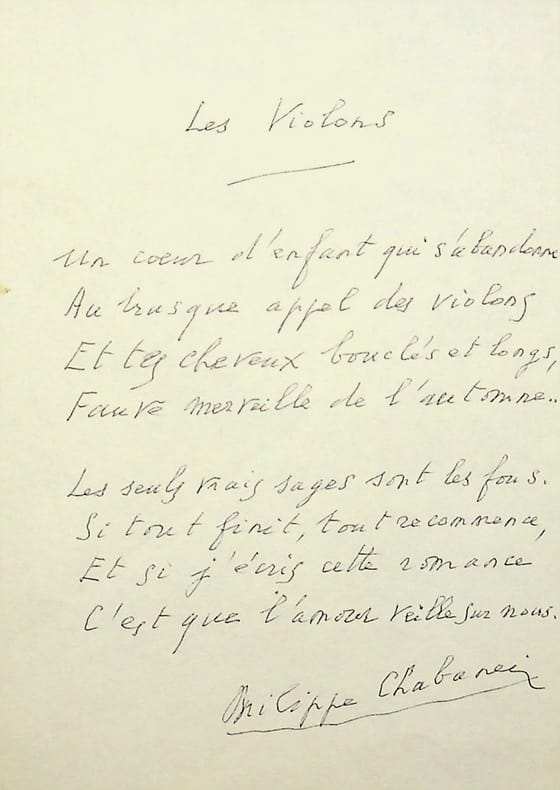 Les Violons
Un coeur d'enfant qui s'abandonne
Au brusque appel des violons
Et tes cheveux bouclés et longs,
Fauve merveille de l'automne..
Les seuls vrais sages sont les fous.
Si tout finit, tout recommence,
Et si j'écris cette romance
C'est que l'amour veille sur nous.
Philippe Chabaneix